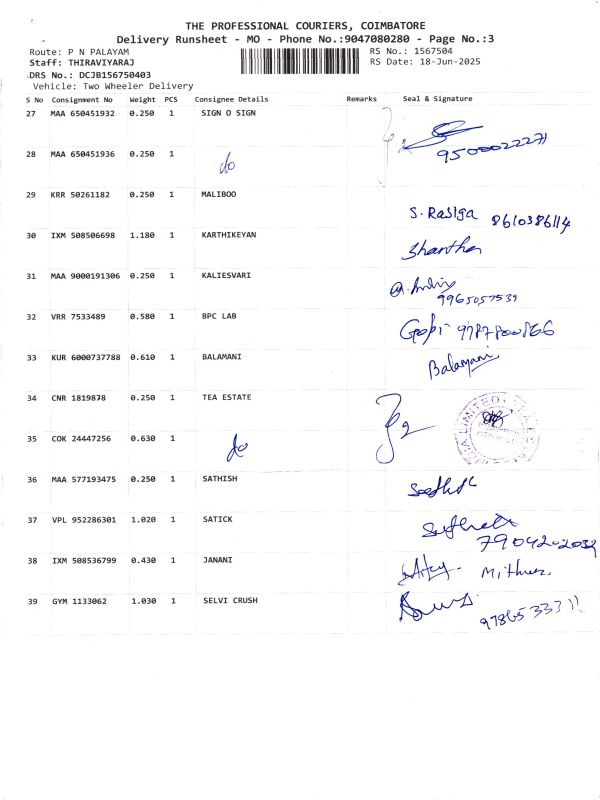 THE PROFESSIONAL COURIERS, COIMBATORE
Delivery Runsheet - MO - Phone No.:9047080280 - Page No.:3
Route: P N PALAYAM
RS No.: 1567504
Staff: THIRAVIYARAJ
RS Date: 18-Jun-2025
DRS No.: DCJB156750403
Vehicle: Two Wheeler Delivery
S No Consignment No Weight PCS Consignee Details Remarks Seal & Signature
27 MAA 650451932 0.250 1 SIGN O SIGN
9500022271
28 MAA 650451936 0.250 1 do
29 KRR 50261182 0.250 1 MALIBOO
S. Rasiga 8610386114
30 IXM 508506698 1.180 1 KARTHIKEYAN
Shantha
31 MAA 9000191306 0.250 1 KALIESVARI
9965057539
32 VRR 7533489 0.580 1 BPC LAB
Gopi 9787800866
33 KUR 6000737788 0.610 1 BALAMANI
Balamani
34 CNR 1819878 0.250 1 TEA ESTATE
35 COK 24447256 0.630 1 do
36 MAA 577193475 0.250 1 SATHISH
37 VPL 952286301 1.020 1 SATICK
7904202032
38 IXM 508536799 0.430 1 JANANI
39 GYM 1133062 1.030 1 SELVI CRUSH
9786533311